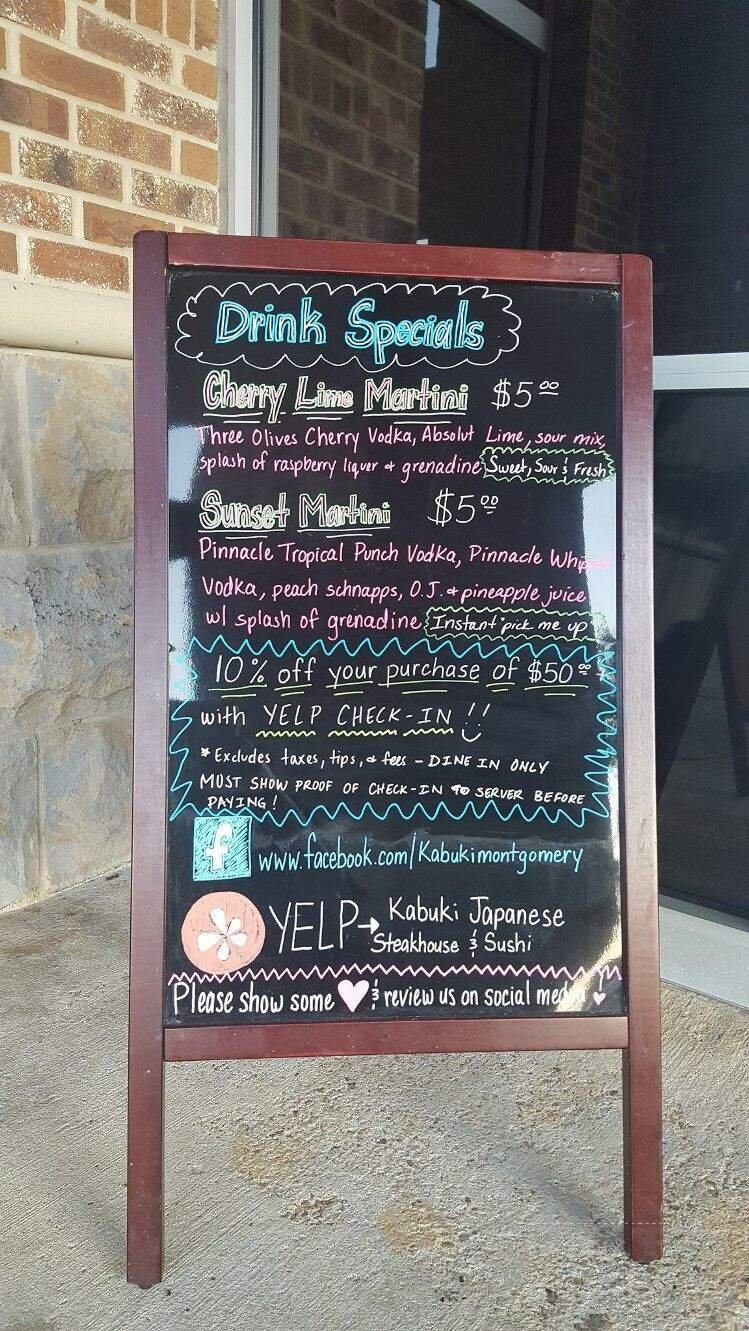 Drink Specials
Cherry Lime Martini $5.00
Three Olives Cherry Vodka, Absolut Lime, sour mix,
splash of raspberry liquer & grenadine Sweet, Sour & Fresh
Sunset Martini $5.00
Pinnacle Tropical Punch Vodka, Pinnacle Whipped
Vodka, peach schnapps, O.J. & pineapple juice
w/ splash of grenadine Instant "pick me up"
10% off your purchase of $50.00+
with YELP CHECK-IN !!
* Excludes taxes, tips, & fees - DINE IN ONLY
MUST SHOW PROOF OF CHECK-IN TO SERVER BEFORE
PAYING!
f www.facebook.com/Kabukimontgomery
YELP → Kabuki Japanese
Steakhouse & Sushi
Please show some ♥ & review us on social media! ♥